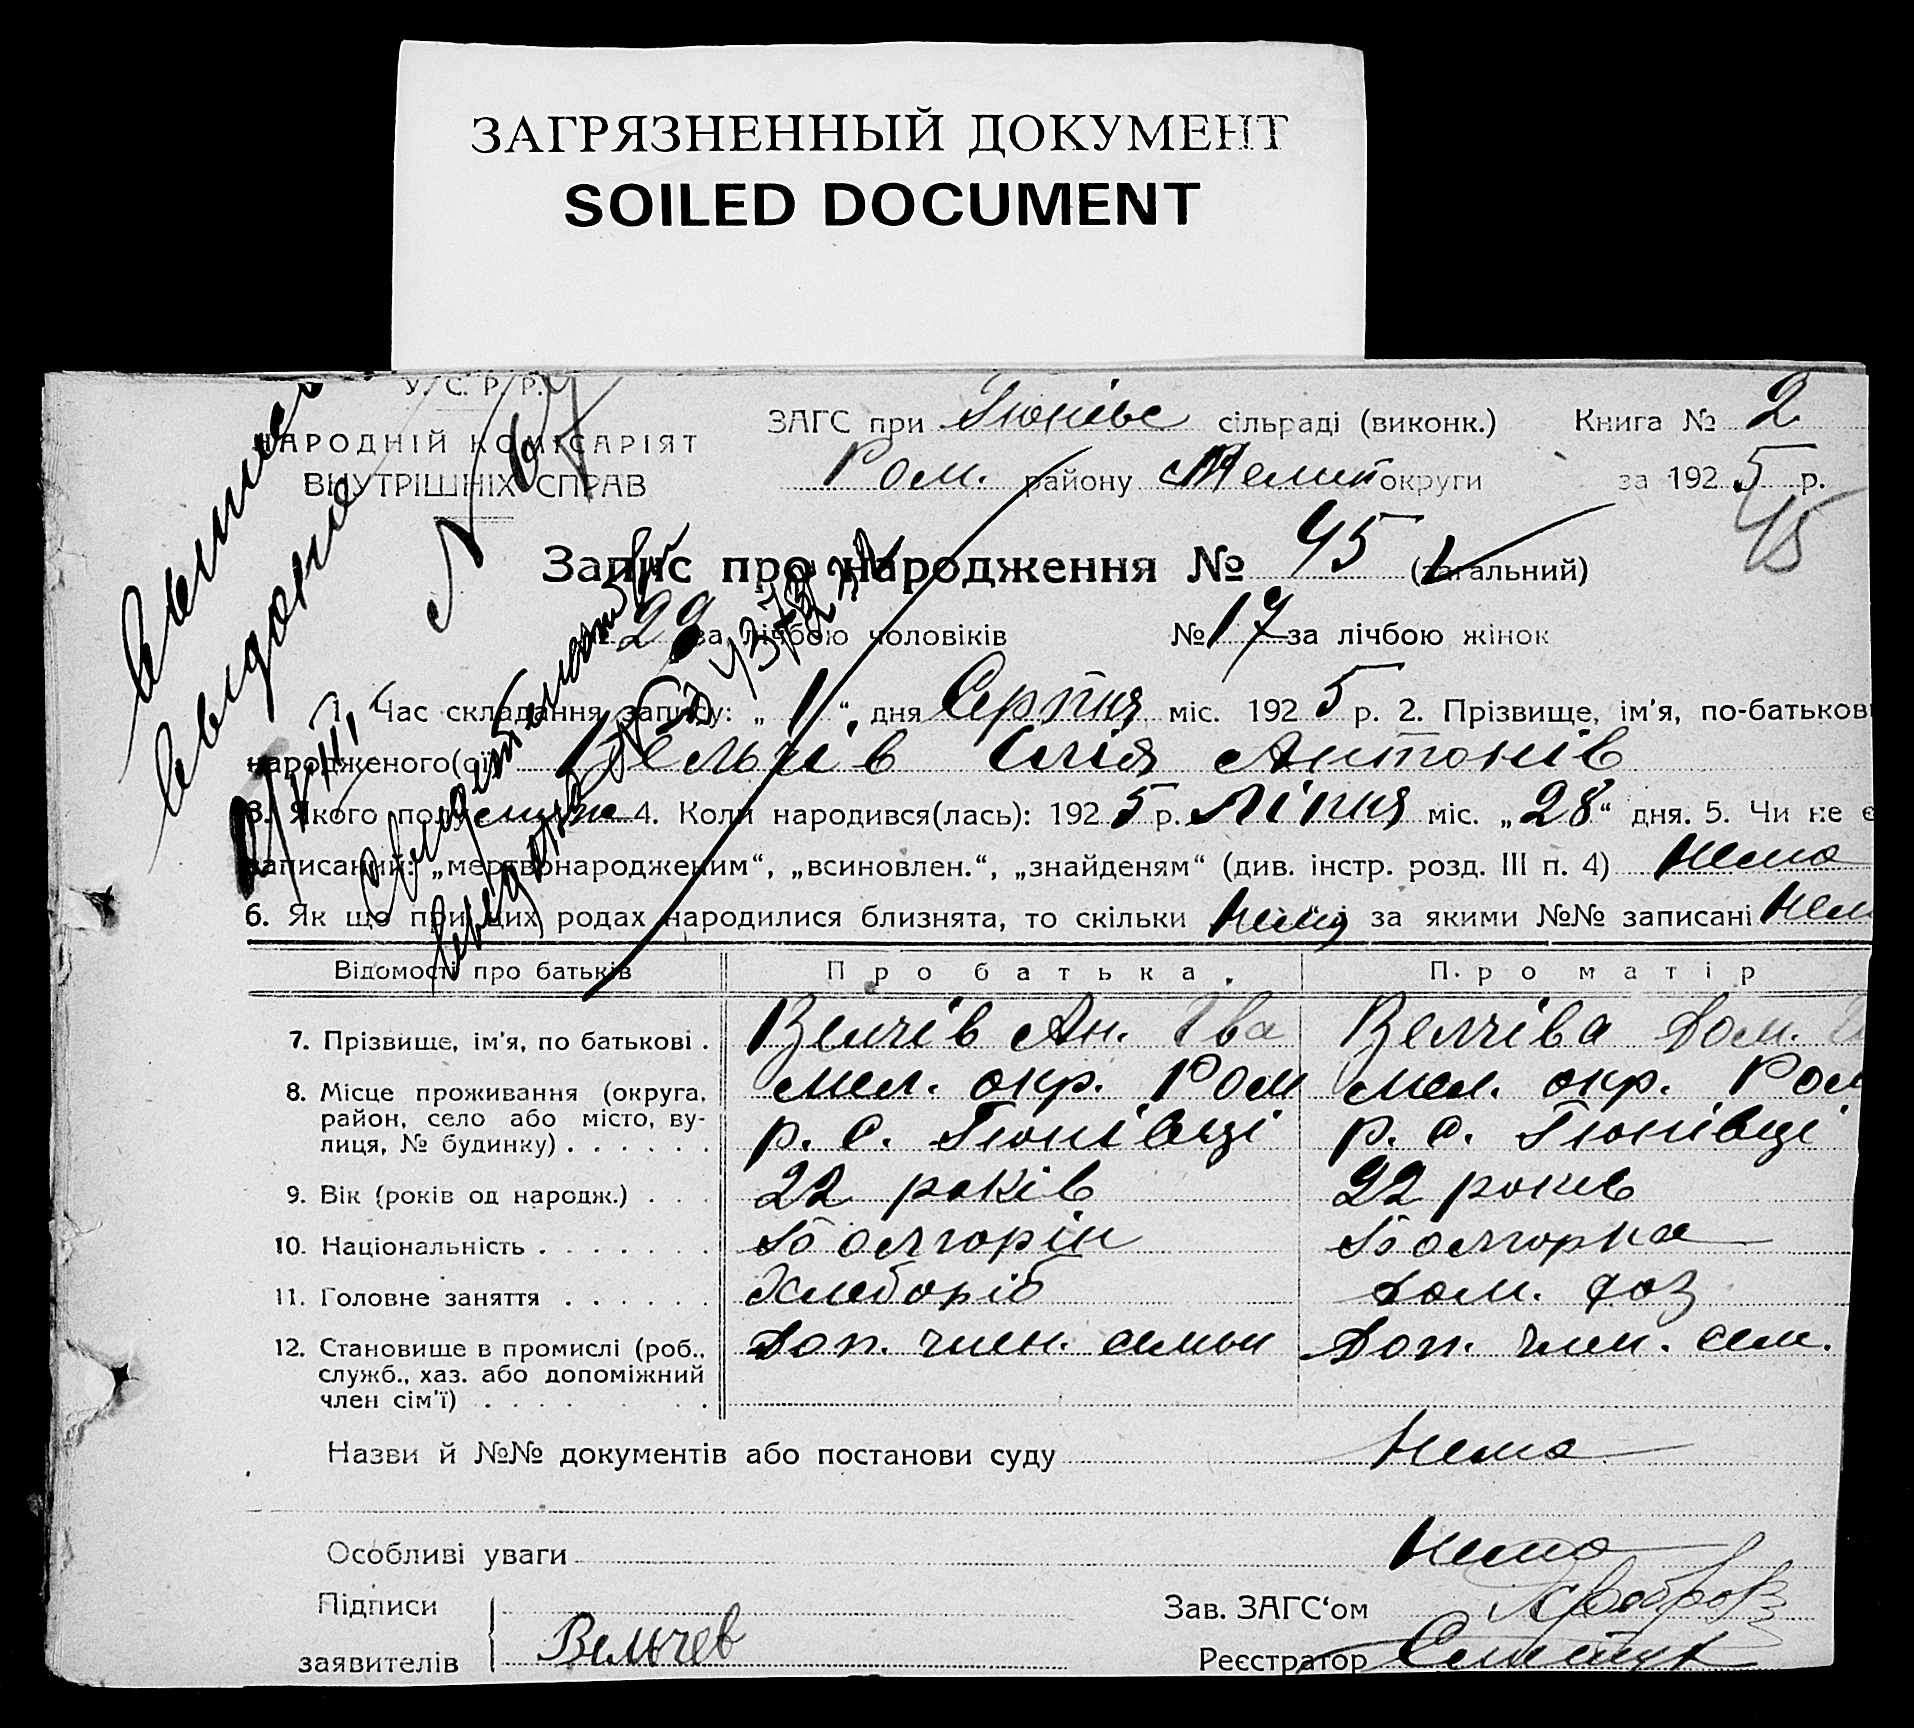 ЗАГРЯЗНЕННЫЙ ДОКУМЕНТ
SOILED DOCUMENT
У. С. Р. Р.
НАРОДНІЙ КОМІСАРІЯТ
ВНУТРІШНІХ СПРАВ
ЗАГС при Гюнівс сільраді (виконк.) Книга № 2
Ром. району Мелит округи за 1925 р.
45
Запис про народження № 45 (загальний)
29 за лічбою чоловіків № 17 за лічбою жінок
1. Час складання запису: „1“ дня Серпня міс. 1925 р. 2. Прізвище, ім'я, по-батькові
народженого(ої) Вельчів Ілія Антонів
3. Якого полу 4. Коли народився(лась): 1925 р. Ліпня міс. „28“ дня. 5. Чи не є
записаний: „мертвонародженим“, „всиновлен.“, „знайденям“ (див. інстр. розд. III п. 4) Нема
6. Як що при цих родах народилися близнята, то скільки Нема за якими №№ записані Нем
Відомості про батьків Про батька. Про матір
7. Прізвище, ім'я, по батькові . Велчів Ан. Іва Велчіва Дом.
8. Місце проживання (округа, район, село або місто, ву-лиця, № будинку) . . . . . . Мел. окр. Ром Мел. окр. Ром
р. С. Гюнівці р. С. Гюнівці
9. Вік (років од народж.) . . . 22 років 22 років
10. Національність . . . . . . Болгорін Болгорка
11. Головне заняття . . . . . . Хлеборіб Дом. хоз
12. Становище в промислі (роб., служб., хаз. або допоміжний член сім'ї) . . . . . . . . Доп. член. семьи Доп. член. сем.
Назви й №№ документів або постанови суду Нема
Особливі уваги Нема
Підписи
заявителів Вельчев
Зав. ЗАГС'ом
Реєстратор